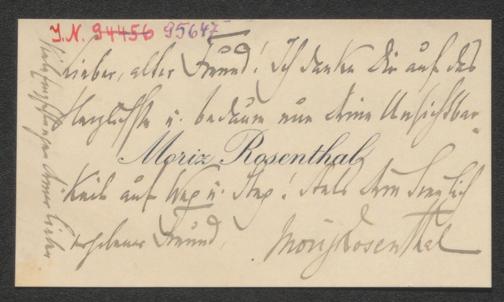 I.N. 94456 95647
Lieber, alter Freund! Ich danke Dir auf das
Herzlichste u. bedaure nur deine Unsichtbar-
Moriz Rosenthal
keit auf Weg u. Steg! Stets Dein treulich
ergebener Freund,
Moriz Rosenthal